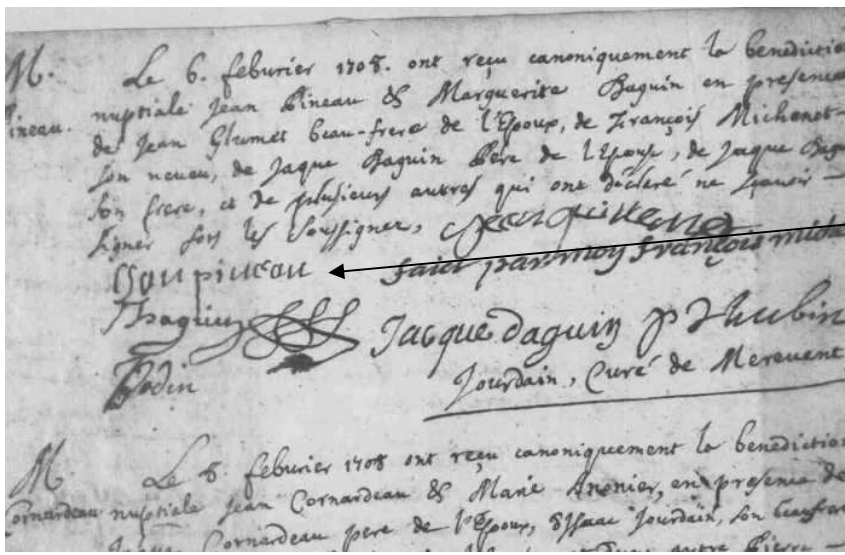 M. Le 6. feburier 1708. ont reçu canoniquement la benedictio
ineau. nuptiale Jean Pineau & Marguerite Daguin en presence
de Jean Glumet beau-frere de l'Epoux, de François Michenet
son neveu, de Jaque Daguin Pere de l'Epouse, de Jaque Dagu
son frere, et de plusieurs autres qui ont déclaré ne sçavoir
signer fors les soussignez,
Jan pineau faict par moy françois mich
Daguin Jacque daguin P Thubin
Bodin Jourdain, Curé de Merevent
M. Le 8. feburier 1708 ont reçu canoniquement la benediction
Cornardeau nuptiale Jean Cornardeau & Marie Anonier, en presence de
Jaque Cornardeau pere de l'Epoux, Jourdain, son beaufrere